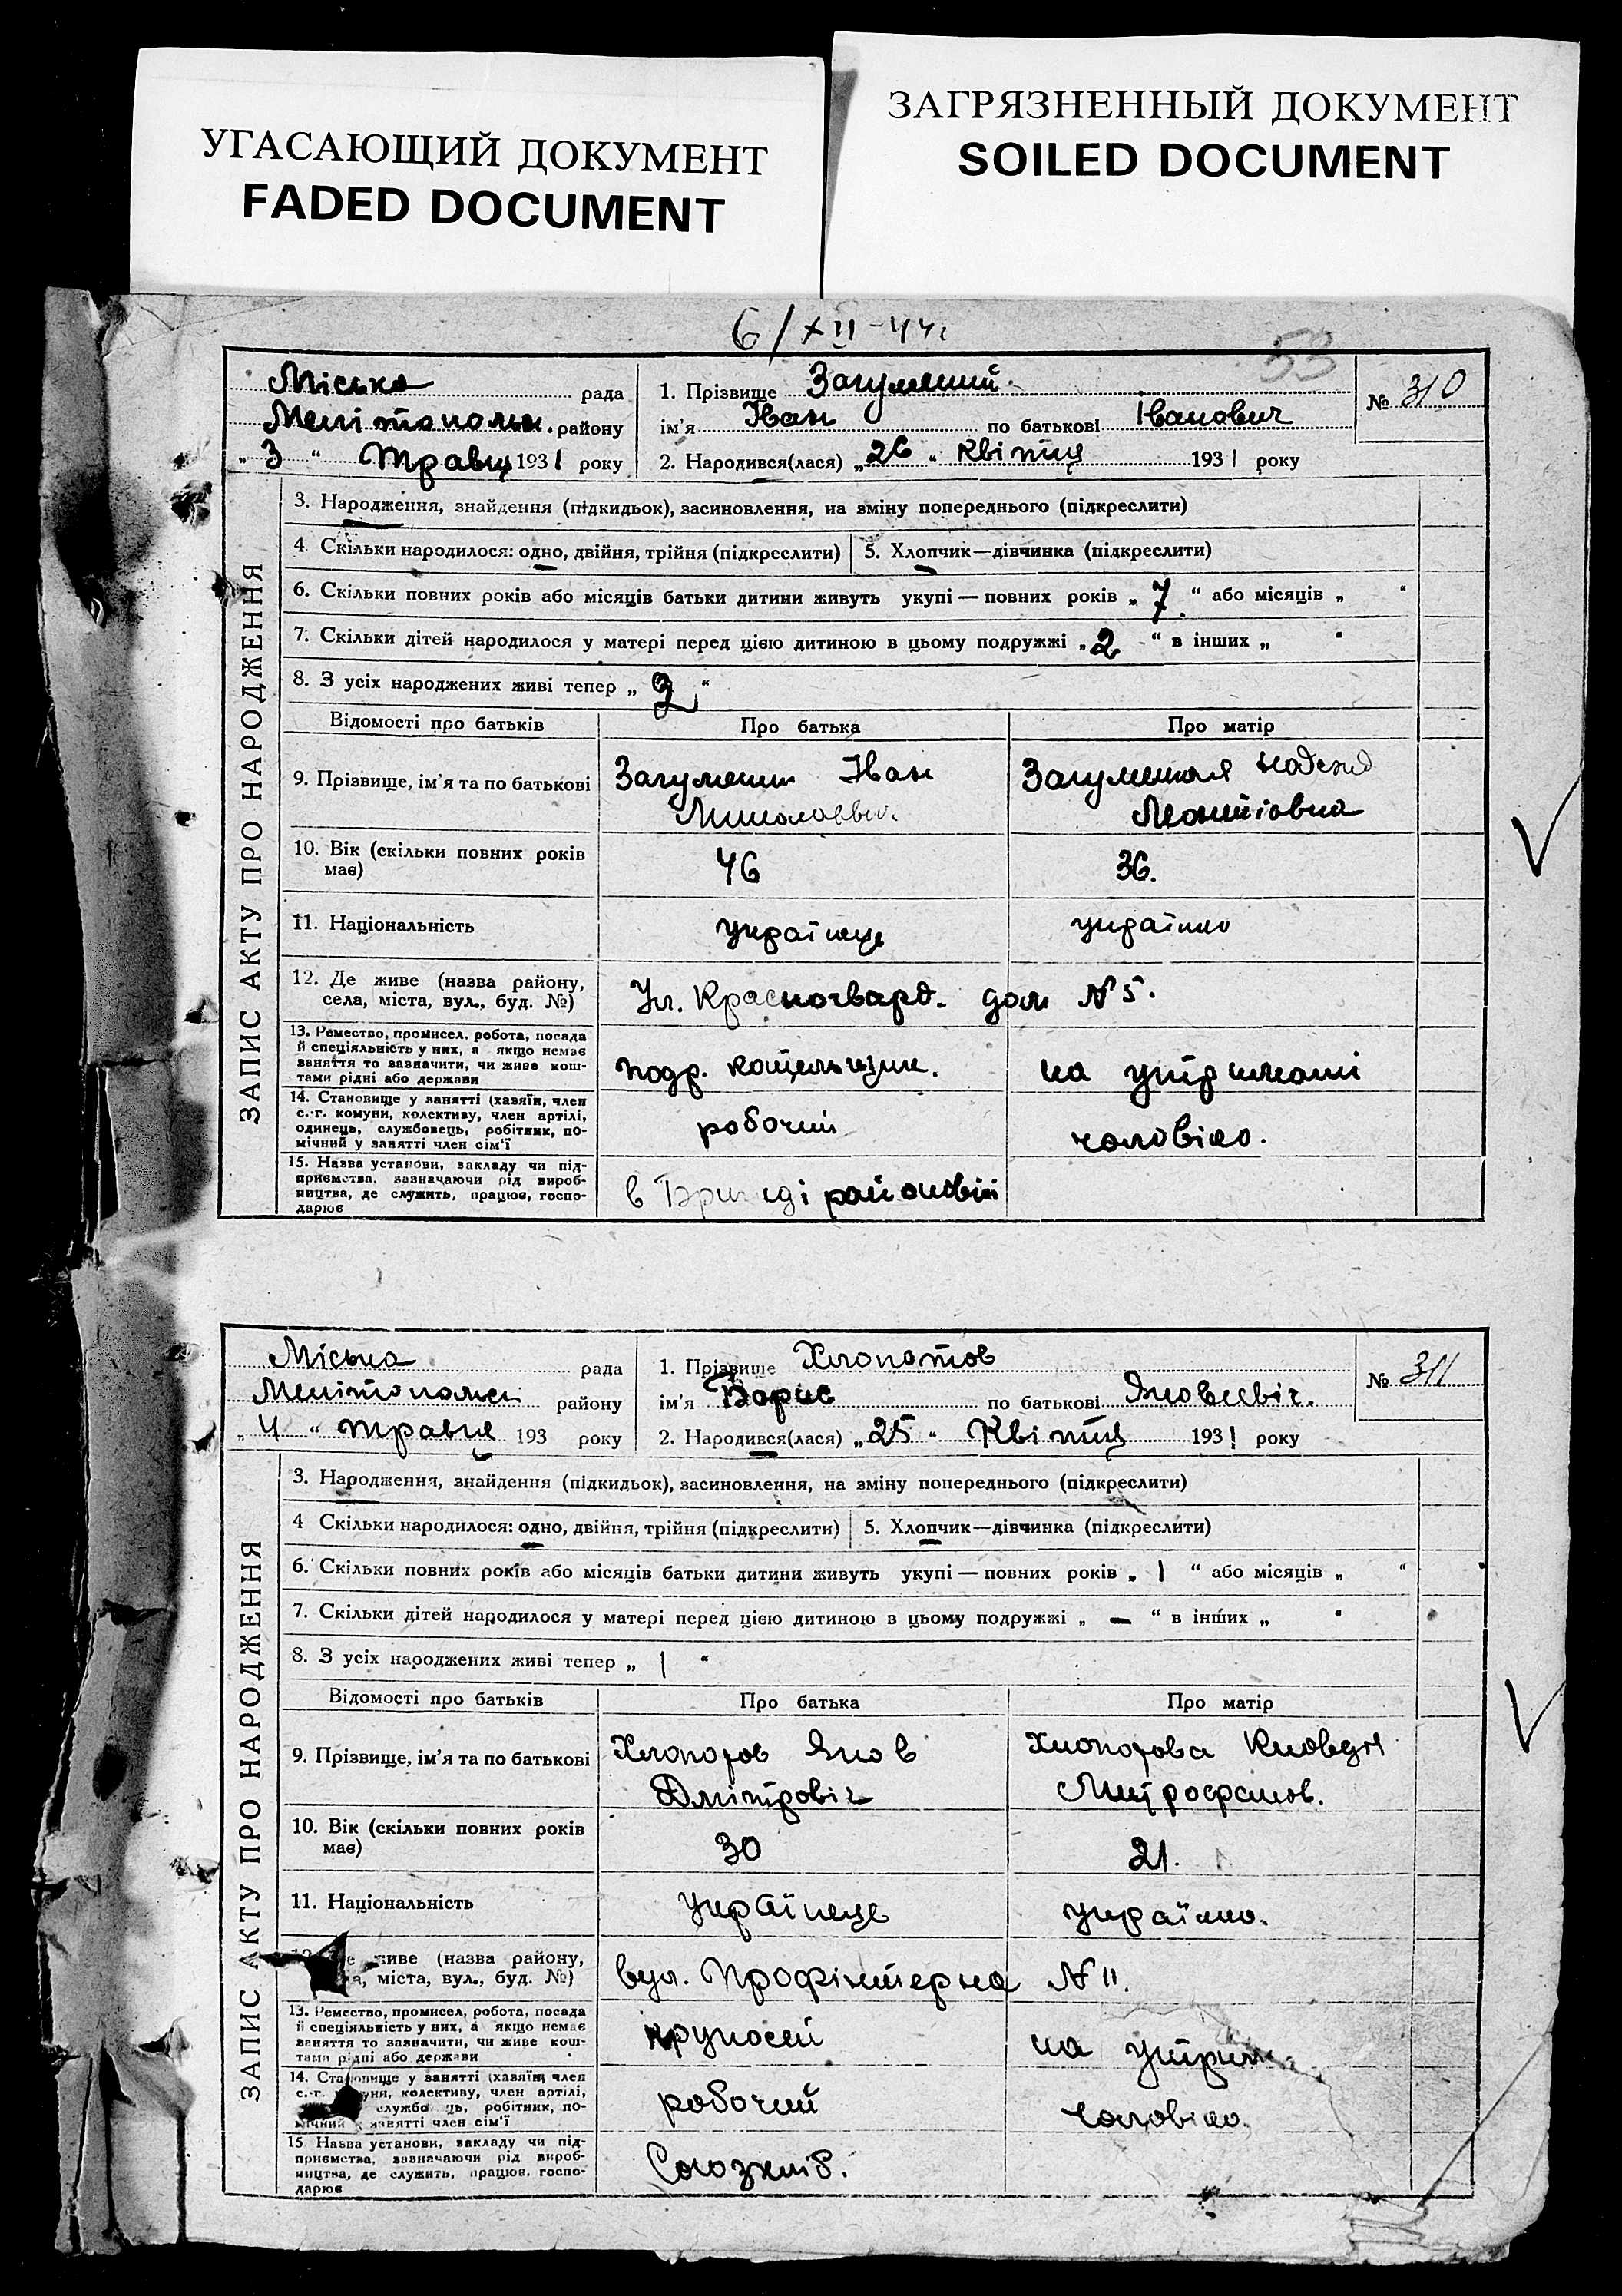 УГАСАЮЩИЙ ДОКУМЕНТ
FADED DOCUMENT
ЗАГРЯЗНЕННЫЙ ДОКУМЕНТ
SOILED DOCUMENT
6/XII-44г
53
Міська рада
Мелітопольс. району
„3“ Травця 1931 року
1. Прізвище Загумений
ім'я Іван по батькові Іванович
2. Народився(лася) „26“ Квітця 1931 року
№ 310
ЗАПИС АКТУ ПРО НАРОДЖЕННЯ
3. Народження, знайдення (підкидьок), засиновлення, на зміну попереднього (підкреслити)
4 Скільки народилося: одно, двійня, трійня (підкреслити)
5. Хлопчик—дівчинка (підкреслити)
6. Скільки повних років або місяців батьки дитини живуть укупі — повних років „7“ або місяців „ “
7. Скільки дітей народилося у матері перед цією дитиною в цьому подружжі „2“ в інших „ “
8. З усіх народжених живі тепер „ “
Відомості про батьків
Про батька
Про матір
9. Прізвище, ім'я та по батькові
Іван
10. Вік (скільки повних років має)
46
36.
11. Національність
українец
українка
12. Де живе (назва району, села, міста, вул., буд. №)
Ул. Красногвард. дом №5.
13. Ремество, промисел, робота, посада й спеціяльність у них, а якщо немає заняття то зазначити, чи живе коштами рідні або держави
подр.
на
14. Становище у занятті (хазяїн, член с.-г. комуни, колективу, член артілі, одинець, службовець, робітник, помічний у занятті член сім'ї
робочий
чоловіка.
15. Назва установи, закладу чи підприємства, зазначаючи рід виробництва, де служить, працює, господарює
в Бригаді районовій
Міська рада
Мелітопольс району
„4“ травця 193 року
1. Прізвище Хлопотов
ім'я Борис по батькові Яковлевіч.
2. Народився(лася) „25“ Квітця 1931 року
№ 311
ЗАПИС АКТУ ПРО НАРОДЖЕННЯ
3. Народження, знайдення (підкидьок), засиновлення, на зміну попереднього (підкреслити)
4 Скільки народилося: одно, двійня, трійня (підкреслити)
5. Хлопчик—дівчинка (підкреслити)
6. Скільки повних років або місяців батьки дитини живуть укупі — повних років „1“ або місяців „ “
7. Скільки дітей народилося у матері перед цією дитиною в цьому подружжі „—“ в інших „ “
8. З усіх народжених живі тепер „1“
Відомості про батьків
Про батька
Про матір
9. Прізвище, ім'я та по батькові
Хлопотов Яков
Дмітровіч
Хлопотова Клавдія
Митрофанов.
10. Вік (скільки повних років має)
30
21.
11. Національність
українець
українка.
живе (назва району, міста, вул., буд. №)
вул. Профінтерна №11.
13. Ремество, промисел, робота, посада й спеціяльність у них, а якщо немає заняття то зазначити, чи живе коштами рідні або держави
на утрим.
14. Становище у занятті (хазяїн, член с.-г. комуни, колективу, член артілі, службовець, робітник, помічний у занятті член сім'ї
робочий
чоловіка.
15. Назва установи, закладу чи підприємства, зазначаючи рід виробництва, де служить, працює, господарює
Союзхліб.